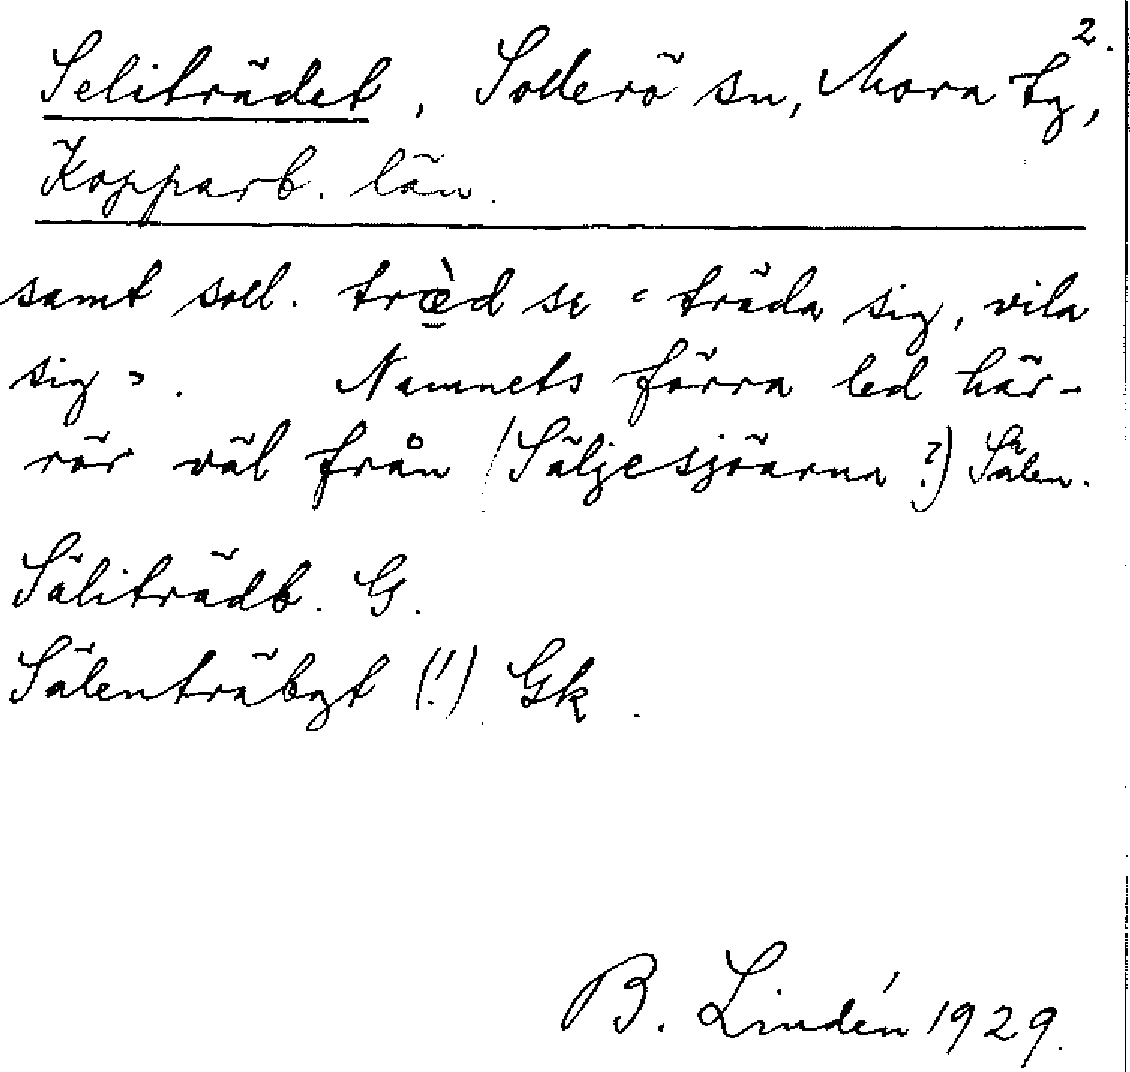 2.
Seliträdet, Sollerö sn, Mora tg,
Kopparb. län.
samt soll. træ̀d se "träda sig, vila
sig". Namnets förra led här-
rör väl från (Säljesjöarna?) Sälen.
Säliträdt. G.
Sälenträbgt (!) Gk.
B. Lindén 1929.